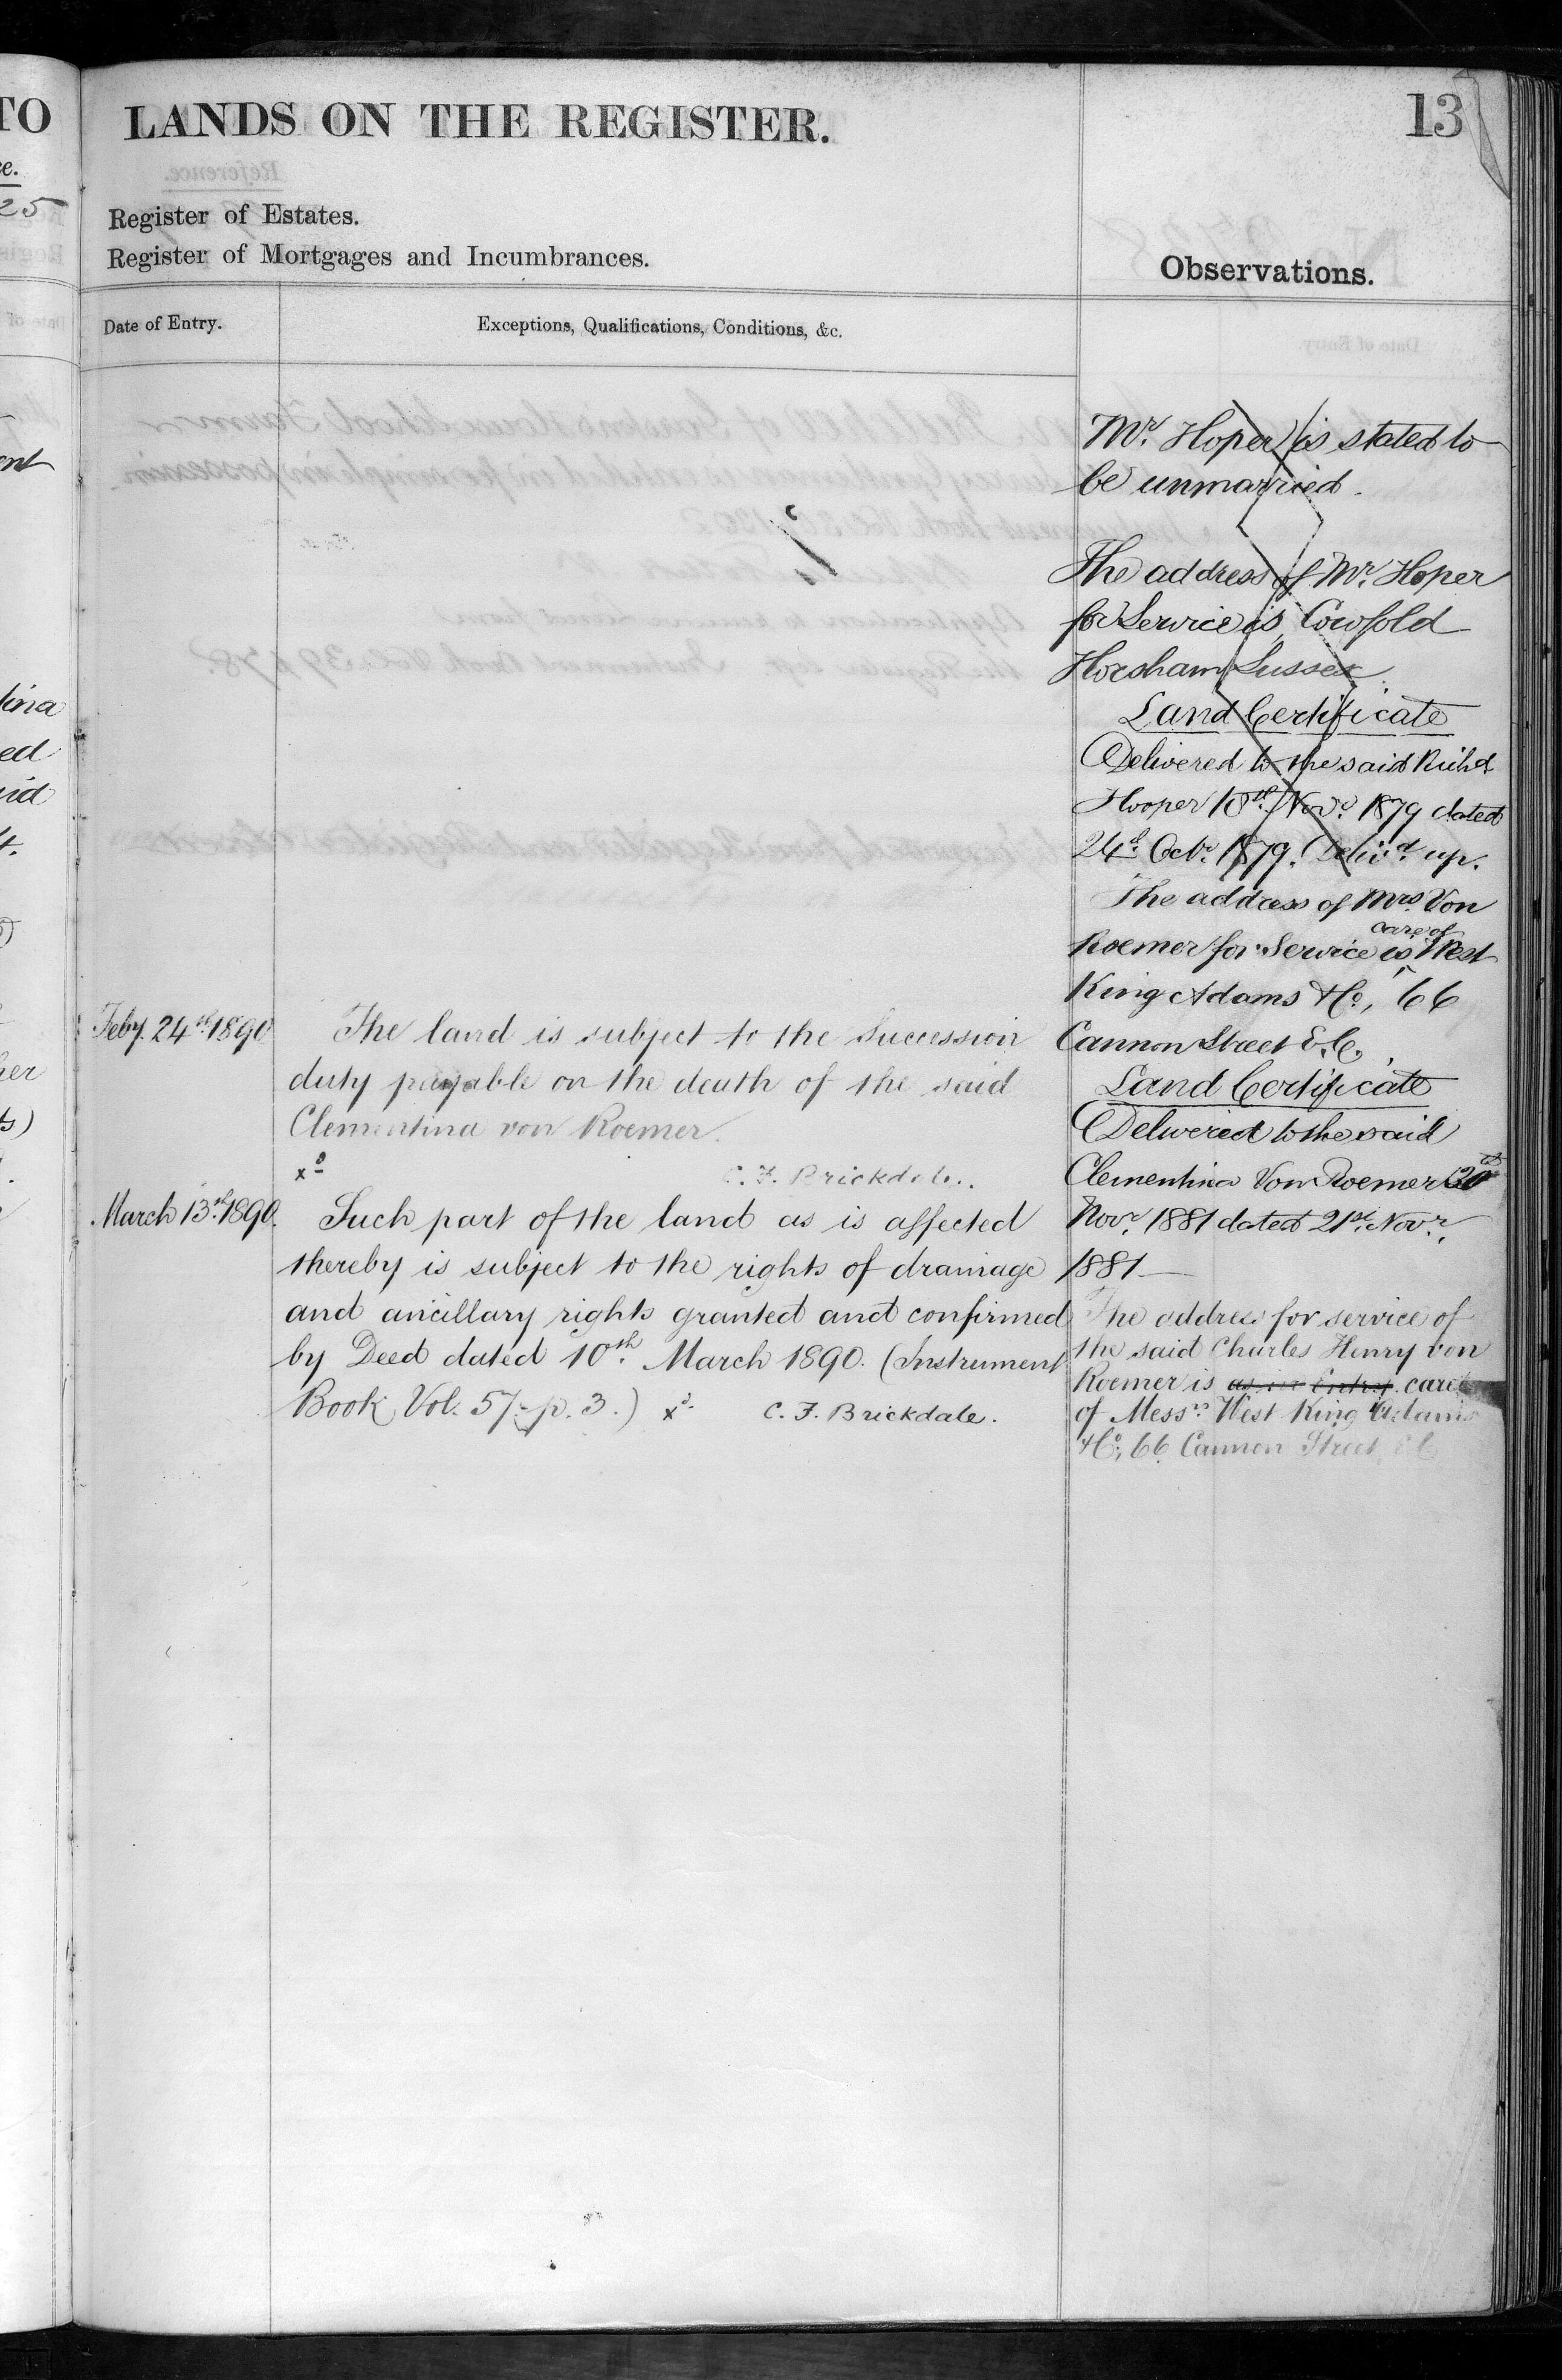 TO
LANDS ON THE REGISTER.
13
25
Register of Estates.
Register of Mortgages and Incumbrances.
Observations.
Date of Entry.
Exceptions, Qualifications, Conditions, &c.
Mr. Hoper is stated to
be unmarried.
The address of Mr. Hoper
for Service is Cowfold
Horsham Sussex
Land Certificate
Delivered to the said Richd
Hooper 10th Novr. 1879 dated
24th Octr. 1879. Deliv'd up.
The address of Mrs. Von
Roemer for Service is care of West
King Adams & Co, 66
Cannon Street E.C.
Land Certificate
Delivered to the said
Clementina Von Roemer
Novr. 1881 dated 21st Novr.
1881
The address for service of
the said Charles Henry von
Roemer is care
of Messrs West King Adams
& Co, 66 Cannon Street, EC
Feby. 24th 1890
The land is subject to the Succession
duty payable on the death of the said
Clementina von Roemer.
C. F. Brickdale.
March 13th 1890.
Such part of the land as is affected
thereby is subject to the rights of drainage
and ancillary rights granted and confirmed
by Deed dated 10th March 1890. (Instrument
Book, Vol. 57 p. 3.) C. F. Brickdale.